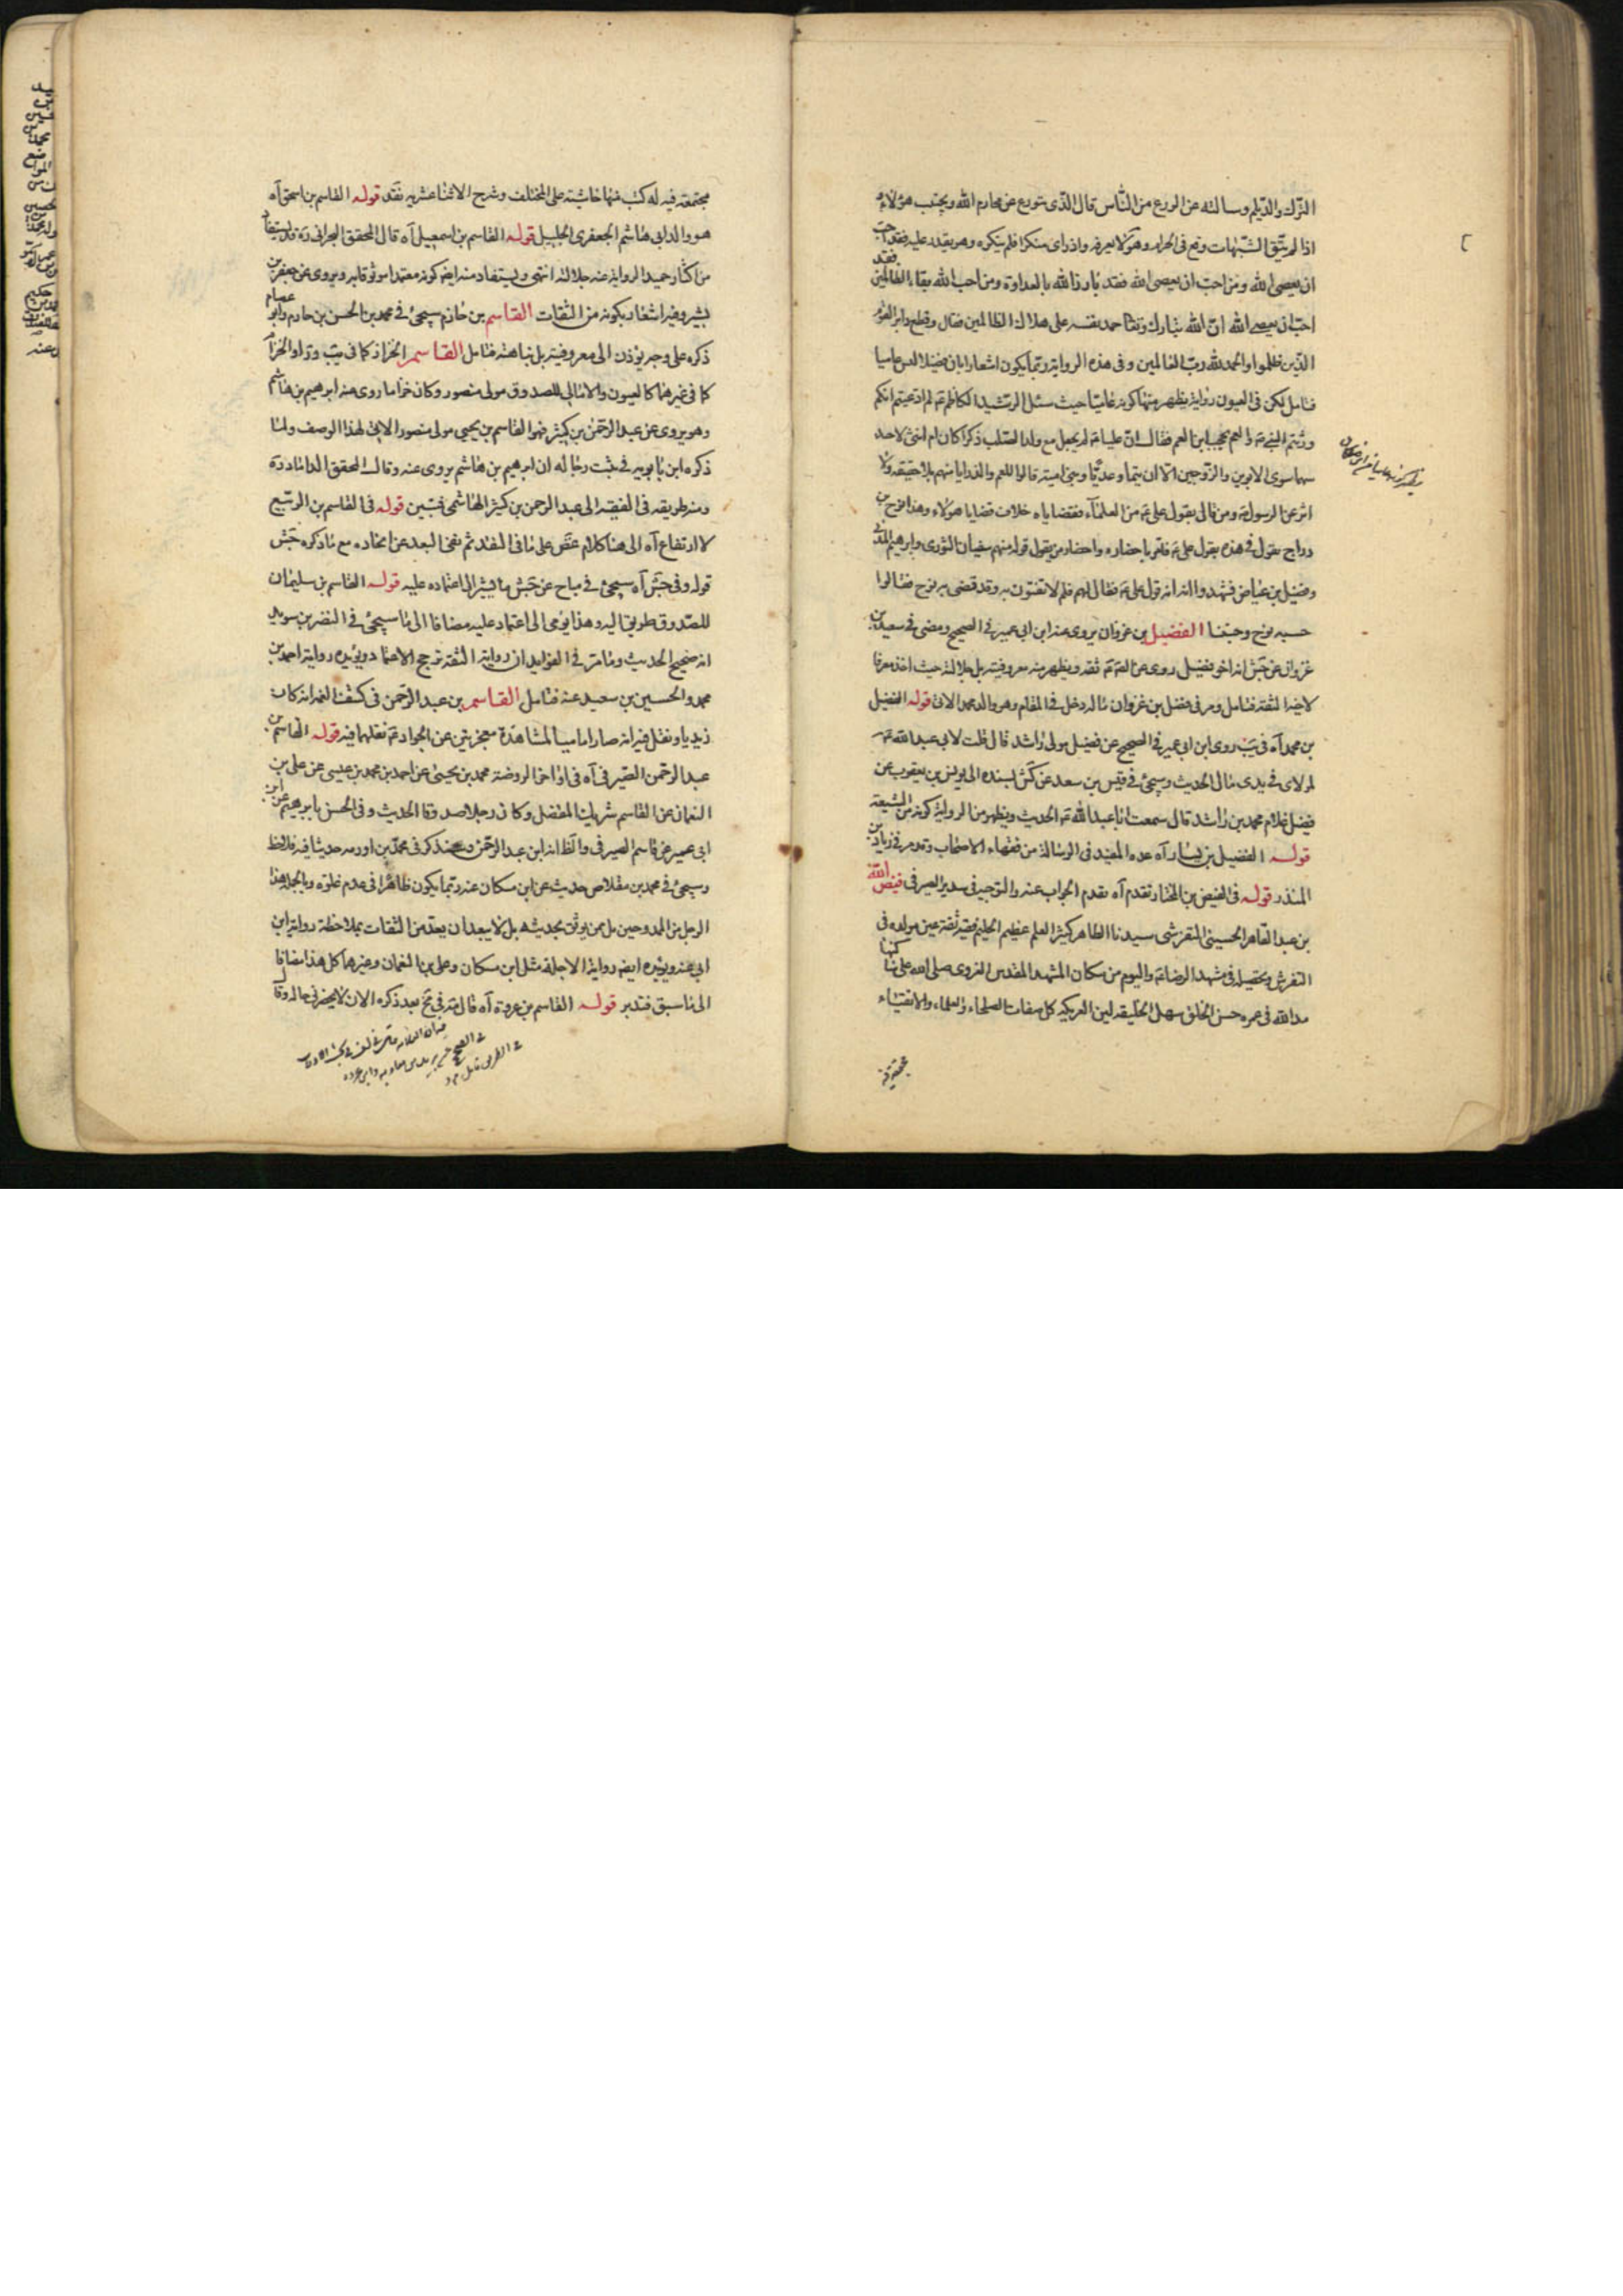 الترك والديلم وسالته عن الورع من الناس قال الذي يتورع عن محارم الله ويجتنب هؤلاء
اذا لم يتق الشبهات وقع في الحرام وهو لا يعرفه واذا راى منكرا فلم ينكره وهو يقدر عليه فقد احب
ان يعصى الله ومن احب ان يعصى الله فقد بارز الله بالعداوة ومن احب الله بقاء الظالمين فقد
احب ان يعصى الله ان الله تبارك وتعا حمد نفسه على هلاك الظالمين فقال وقطع دابر القوم
الذين ظلموا والحمد لله رب العالمين وفي هذه الرواية ربما يكون اشعارا بان فضيلا ليس عاميا
فتامل لكن في العيون رواية يظهر منها كونه عاميا حيث سئل الرشيد الكاظم ع لم ادعيتم انكم
ورثتم النبي ص والعم يحجب ابن العم فقال ان عليا ع لم يجعل مع ولد الصلب ذكرا كان ام انثى لاحد
سهما سوى الابوين والزوجين الا ان تيما وعديا وبنى امية قالوا للعم والد رايا منهم بلا حقيقة ولا
اثر عن الرسول ص ومن قال بقول علي ع من العلماء فقضاياه خلاف قضايا هؤلاء وهذا نوح بن
دراج يقول في هذه بقول علي ع فامر باحضاره واحضار من يقول قوله منهم سفيان الثوري وابرهيم المدني
وفضيل بن عياض فشهدوا انه قول علي ع فقال لهم فلم لا تفتون به وقد قضى به نوح فقالوا
جسر نوح وجبنا الفضيل بن غزوان يروى عنه ابن ابي عمير في الصحيح ومضى في سعيد بن
غزوان عن جش انه اخو فضيل روى عن الصم ع ثقه ويظهر منه معروفيته بل جلالته حيث اخذ معرفا
لاخيه الثقة فتامل ومر في فضل بن غزوان ماله دخل في المقام وهو والد محمد الاتي قوله الفضيل
بن محمد آه في يب روى ابن ابي عمير في الصحيح عن فضيل مولى راشد قال قلت لابي عبد الله ع
لمولاى في يدى مال الحديث وسيجئ في قيس بن سعد عن كش بسنده الى يونس بن يعقوب عن
فضيل غلام محمد بن راشد قال سمعت ابا عبد الله ع الحديث ويظهر من الرواية كونه من الشيعة
قوله الفضيل بن يسار آه عده المفيد في الرسالة من فقهاء الاصحاب وتقدم في زياد بن
المنذر قوله في الفيض بن المختار تقدم آه يقدم الجواب عنه والتوجيه في سدير الصيرفي فيض الله
بن عبد القاهر الحسيني التفرشي سيدنا الطاهر كثير العلم عظيم الحلم فقيه ثقة عين مولده في
التفرش وتحصيله في مشهد الرضا ع واليوم من سكان المشهد المقدس الغروى صلى الله على ساكنها
مد الله في عمره حسن الخلق سهل الخليقه لين العريكه كل صفات الصلحاء والعلماء والاتقياء
مجتمعة فيه له كتب منها حاشية على المختلف وشرح الاثنا عشريه نقد قوله القاسم بن اسحق آه
هو والد ابي هاشم الجعفري الجليل قوله القاسم بن اسمعيل آه قال المحقق البحراني ره قد يستفاد
من اكثار حميد الرواية عنه جلالته انتهى ويستفاد منه ايضا كونه معتمدا موثوقا به ويروى عن جعفر بن
بشير وفيه اشعار بكونه من الثقات القاسم بن حازم سيجئ في محمد بن الحسن بن حازم وابو عصام
ذكره على وجه يؤذن الى معروفيته بل نباهته فتامل القاسم الخزاز كما في يب وزاد الخزاز
كما في غيرهما كالعيون والامالي للصدوق مولى منصور وكان خزاما روى عنه ابرهيم بن هاشم
وهو يروى عن عبد الرحمن بن كثير فهو القاسم بن يحيى مولى منصور الاتي لهذا الوصف ولما
ذكره ابن بابويه في ثبت رجاله ان ابرهيم بن هاشم يروى عنه وقال المحقق الداماد ره
ومنه طريقه في الفقيه الى عبد الرحمن بن كثير الهاشمي فتبين قوله في القاسم بن الربيع
لا ارتفاع آه الى هنا كلام غض على ما في النقد ثم نفى البعد عن اتحاده مع ما ذكره جش
قوله وفي جش آه سيجئ في مياح عن جش ما يشير الى اعتماده عليه قوله القاسم بن سليمان
للصدوق طريق اليه وهذا يومى الى اعتماد عليه مضافا الى ما سيجئ في النضر بن سويد
انه صحيح الحديث وما مر في الفوايد ان رواية الثقة ترجح الاعتماد ويؤيده رواية احمد بن
محمد والحسين بن سعيد عنه فتامل القاسم بن عبد الرحمن في كشف الغمه انه كان
زيديا ونقل فيه انه صار اماميا لمشاهدة معجزتين عن الجواد ع نقلهما فيه قوله القاسم بن
عبد الرحمن الصيرفي آه في اواخر الروضة محمد بن يحيى عن احمد بن محمد بن عيسى عن علي بن
النعمان عن القاسم شريك المفضل وكان رجلا صدوقا الحديث وفي الحسن بابرهيم عن ابن
ابي عمير عن قاسم الصيرفي والظ انه ابن عبد الرحمن وسنذكر في محمد بن اورمه حديثا فيه فلاحظ
وسيجئ في محمد بن مقلاص حديث عن ابن مسكان عنه ربما يكون ظاهرا في عدم غلوه وبالجملة هذا
الرجل من الممدوحين بل ممن يوثق بحديثهم بل لا يبعد ان يعد من الثقات بملاحظة رواية ابن
ابي عنه ويؤيده ايضه رواية الاجلة مثل ابن مسكان وعلى بن النعمان وغيرهما كل هذا مضافا
الى ما سبق فتدبر قوله القاسم بن عروة آه قال مه في تح بعد ذكره الان لا يحضرني حاله وقال